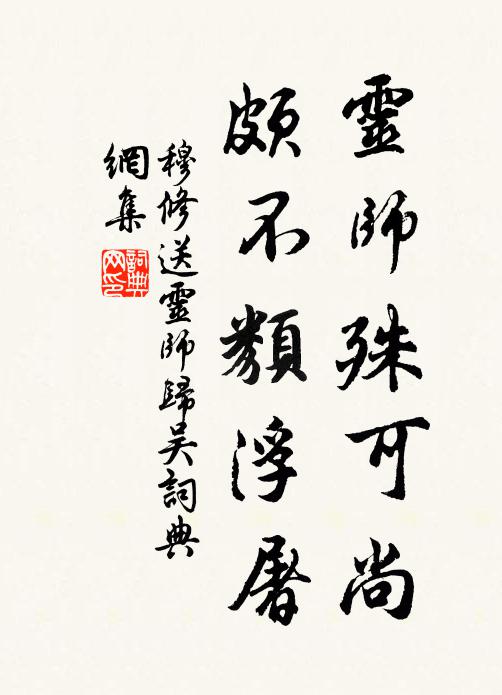 靈師殊可尚
頗不類浮屠
穆修送靈師歸吴詞典
網集
詞典网印